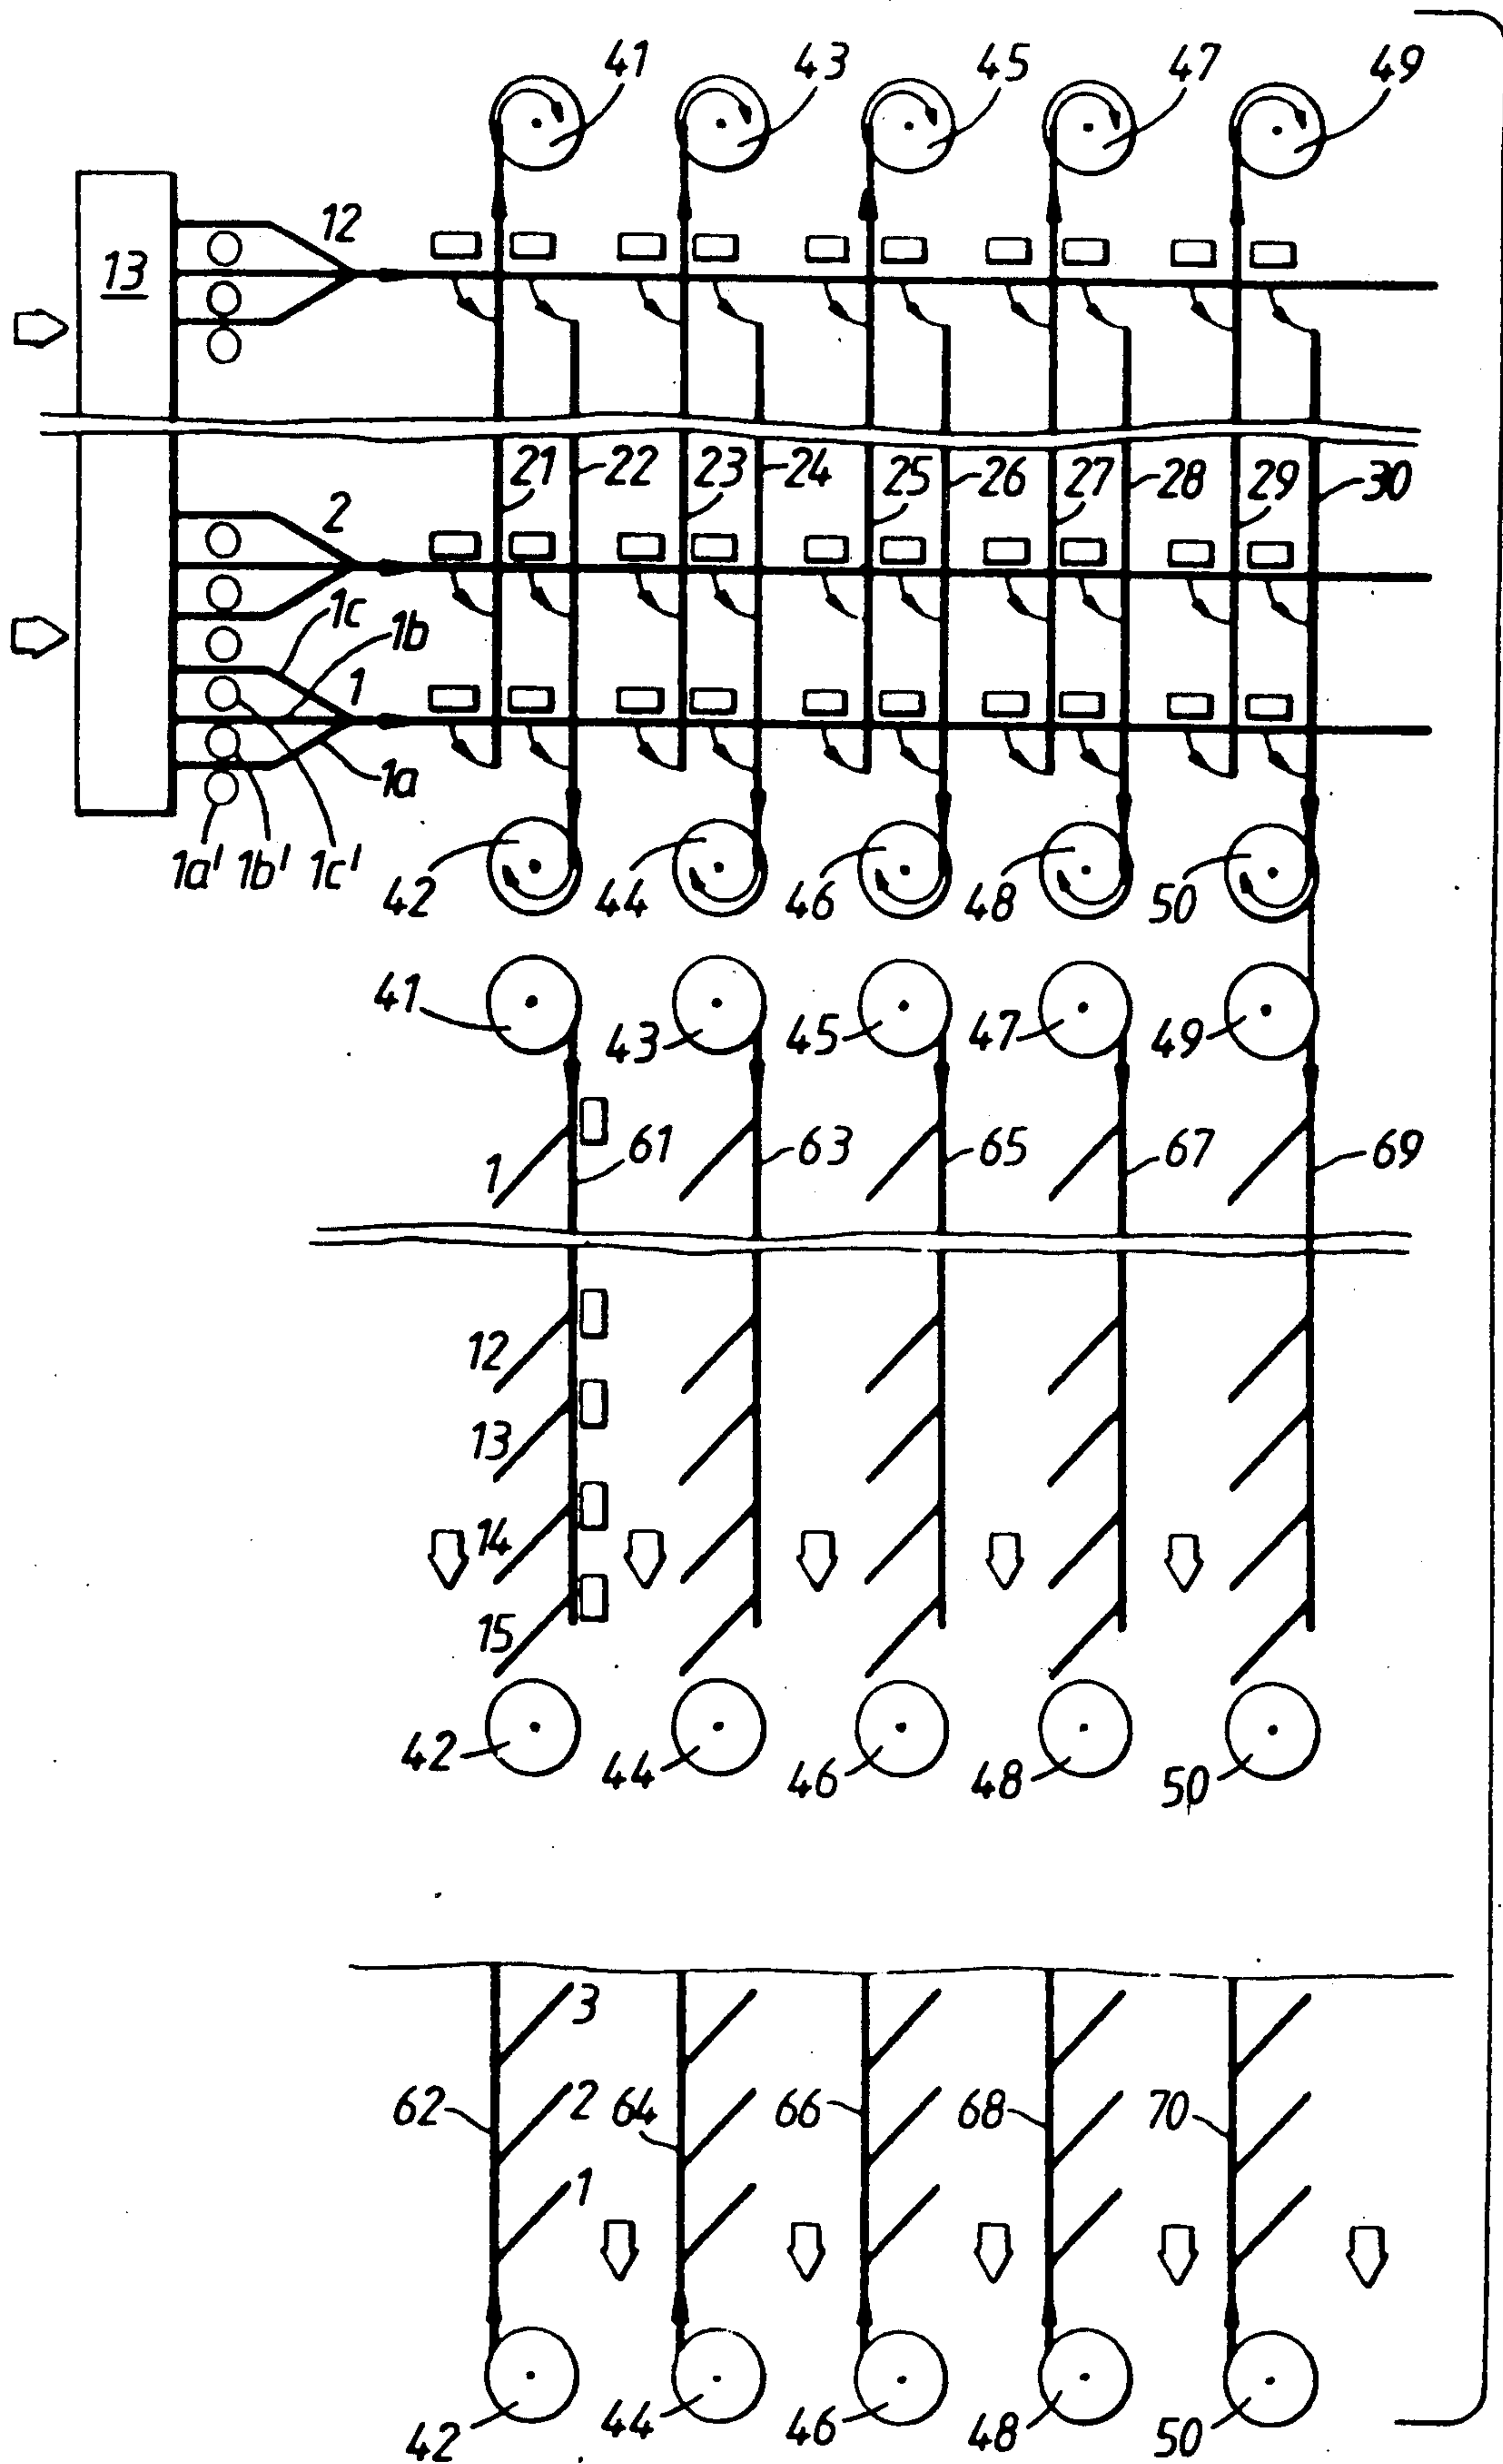 41 43 45 47 49
12
13
21 22 23 24 25 26 27 28 29 30
2
1c 1b
1
1a
1a' 1b' 1c'
42 44 46 48 50
41 43 45 47 49
1 61 63 65 67 69
12
13
14
15
42 44 46 48 50
3
62 2 64 66 68 70
1
42 44 46 48 50